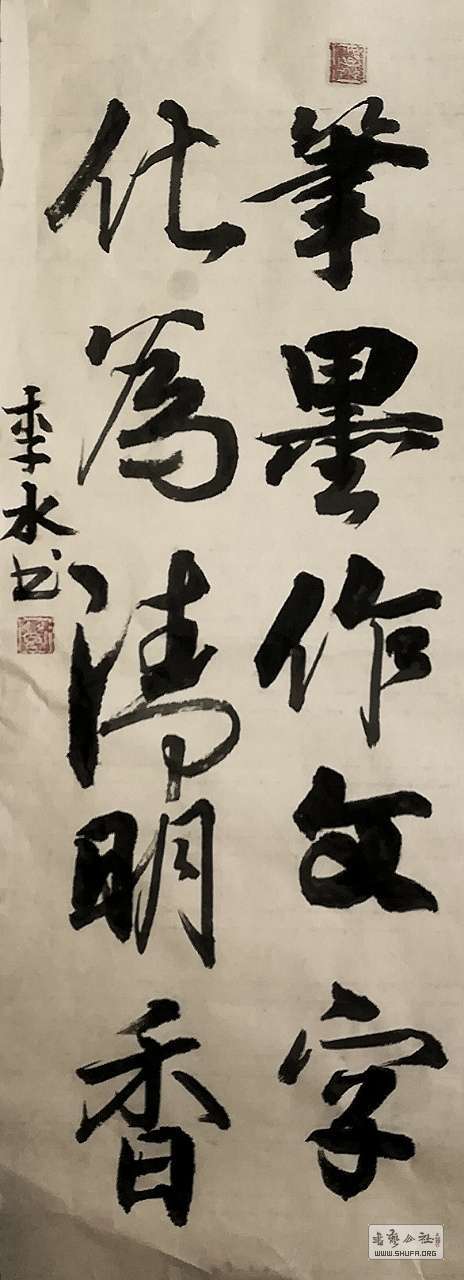 筆墨作文字
化為清明香
季水书
书艺公社
WWW.SHUFA.ORG